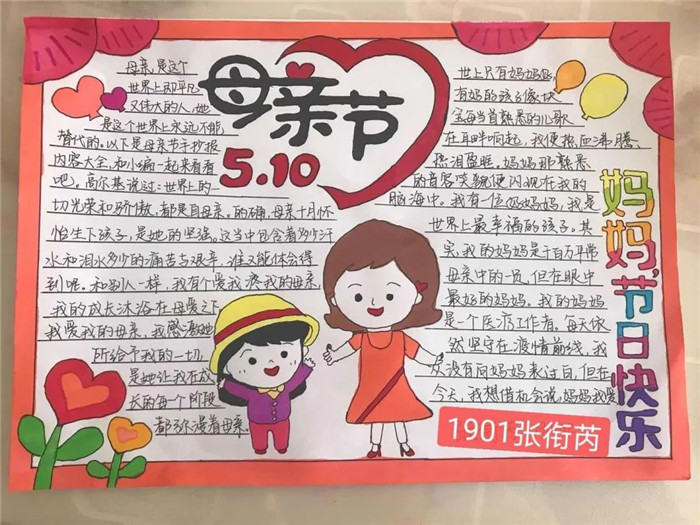 母亲节
5.10
母亲,是这个
世界上即平凡
又伟大的人,她
是这个世界上永远不能
替代的。以下是母亲节手抄报
内容大全,和小编一起来看看
吧。高尔基说过:世界上的一
切光荣和骄傲,都是自母亲。的确,母亲十月怀
怡生下孩子,是她的坚强。这当中包含着多少汗
水和泪水多少的痛苦与艰辛,谁又能体会得
到呢。和别人一样,我有个爱我疼我的母亲,
我的成长沐浴在母爱之下
我爱我的母亲,我感激她
所给予我的一切,
是她让我在成
长的每个阶段
都弥漫着母亲.
世上只有妈妈好,
有妈的孩子像块
宝每当首熟悉的儿歌
在耳畔响起,我便热血沸腾、
热泪盈眶。妈妈那熟悉
的音容笑貌便闪现在我的
脑海中。我有一位妈妈妈,我是
世界上最幸福的孩子。其
实,我的妈妈是千百万平常
母亲中的一员,但在眼中
最好的妈妈。我的妈妈
是一个医疗工作者。每天依
然坚守在疫情前线,我
从没有向妈妈表过白,但在
今天,我想借机会说,妈妈我爱
妈妈,节日快乐
1901张衔芮